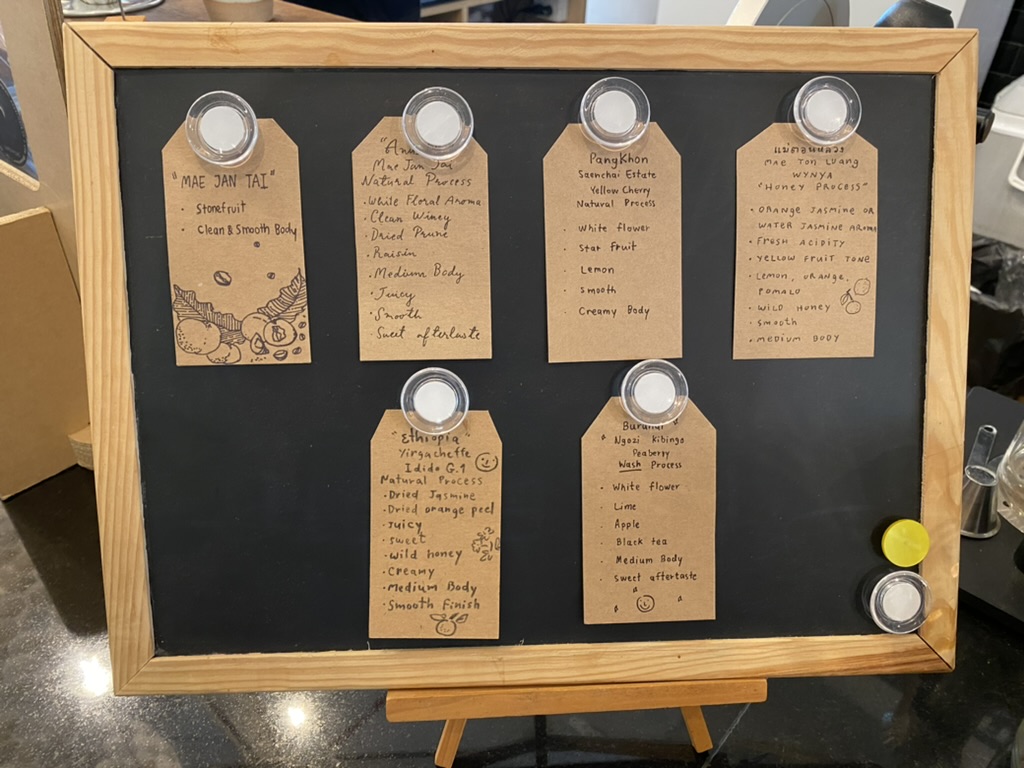 "MAE JAN TAI"
• Stonefruit
• Clean & Smooth Body
Mae Jan Tai
Natural Process
• White Floral Aroma
• Clean Winey
• Dried Prune
• Raisin
• Medium Body
• Juicy
• Smooth
• Sweet aftertaste
PangKhon
Saenchai Estate
Yellow Cherry
Natural Process
• White flower
• Star fruit
• Lemon
• smooth
• Creamy Body
แม่ตอนหลวง
MAE TON LUANG
WYNYA
"HONEY PROCESS"
• ORANGE JASMINE OR
WATER JASMINE AROMA
• FRESH ACIDITY
• YELLOW FRUIT TONE
• LEMON, ORANGE,
POMALO
• WILD HONEY
• smooth
• MEDIUM BODY
"Ethiopia"
Yirgacheffe
Idido G.1
Natural Process
• Dried Jasmine
• Dried orange peel
• Juicy
• sweet
• wild honey
• Creamy
• Medium Body
• Smooth Finish
Burundi
Ngozi Kibingo
Peaberry
Wash Process
• White flower
• Lime
• Apple
• Black tea
• Medium Body
• sweet aftertaste